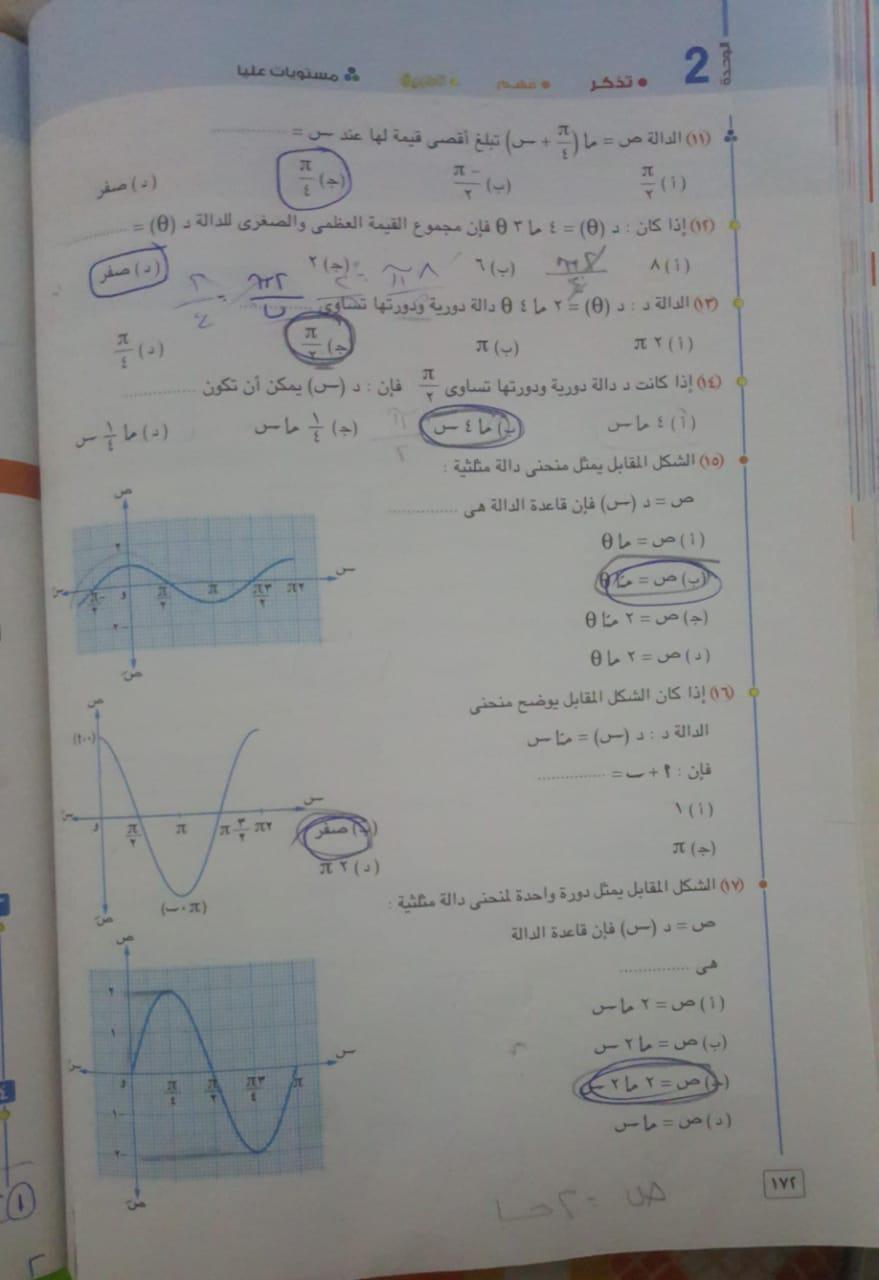 الوحدة 2 • تذكر • فهم • تطبيق مستويات عليا
(١١) الدالة ص = ما (π/٤ + س) تبلغ أقصى قيمة لها عند س = ............
(أ) π/٢ (ب) -π/٢ (ج) π/٤ (د) صفر
(١٢) إذا كان : د (θ) = ٤ ما ٣ θ فإن مجموع القيمة العظمى والصغرى للدالة د (θ) = ............
(أ) ٨ (ب) ٦ (ج) ٢ (د) صفر
(١٣) الدالة د : د (θ) = ٢ ما ٤ θ دالة دورية ودورتها تساوى ............
(أ) ٢ π (ب) π (ج) π/٢ (د) π/٤
(١٤) إذا كانت د دالة دورية ودورتها تساوى π/٢ فإن : د (س) يمكن أن تكون ............
(أ) ٤ ما س (ب) ما ٤ س (ج) ١/٤ ما س (د) ما ١/٤ س
(١٥) الشكل المقابل يمثل منحنى دالة مثلثية :
ص = د (س) فإن قاعدة الدالة هى ............
(أ) ص = ما θ
(ب) ص = منا θ
(ج) ص = ٢ منا θ
(د) ص = ٢ ما θ
ص
٢
س
سَ
-π/٢ و π/٢ π ٣π/٢ ٢π
-٢
صَ
(١٦) إذا كان الشكل المقابل يوضح منحنى
الدالة د : د (س) = منا س
فإن : ٢ + ب = ............
(أ) ١
(ب) صفر
(ج) π
(د) ٢ π
ص
س
سَ
و π/٢ π ٣/٢ π ٢π
(π ، ب)
صَ
(١٧) الشكل المقابل يمثل دورة واحدة لمنحنى دالة مثلثية :
ص = د (س) فإن قاعدة الدالة
هى ............
(أ) ص = ٢ ما س
(ب) ص = ما ٢ س
(ج) ص = ٢ ما ٢ س
(د) ص = ما س
ص
٢
١
س
سَ
و π/٤ π/٢ ٣π/٤ π
-١
-٢
صَ
١٧٢
ص = ٢ حا